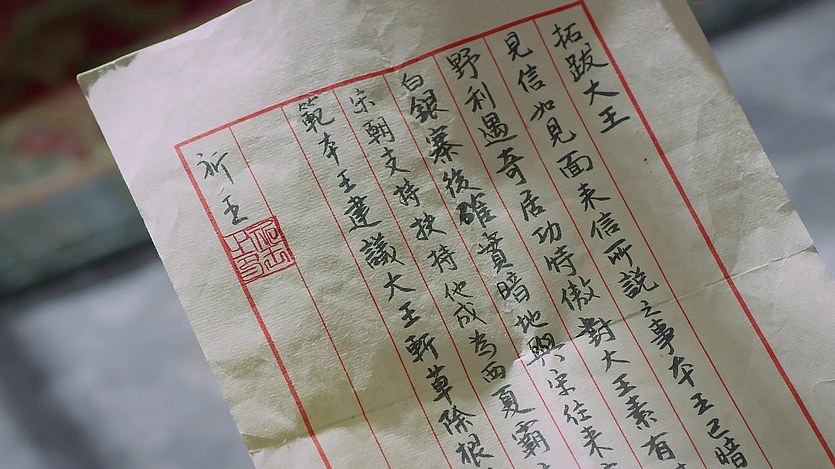 拓跋大王
見信如見面来信所說之事本王已暗
野利遇奇居功恃傲對大王素有
白銀寨後確實暗地與宋往来
宋朝支持扶持他成為西夏霸
範本王建議大王斬草除根
祈王